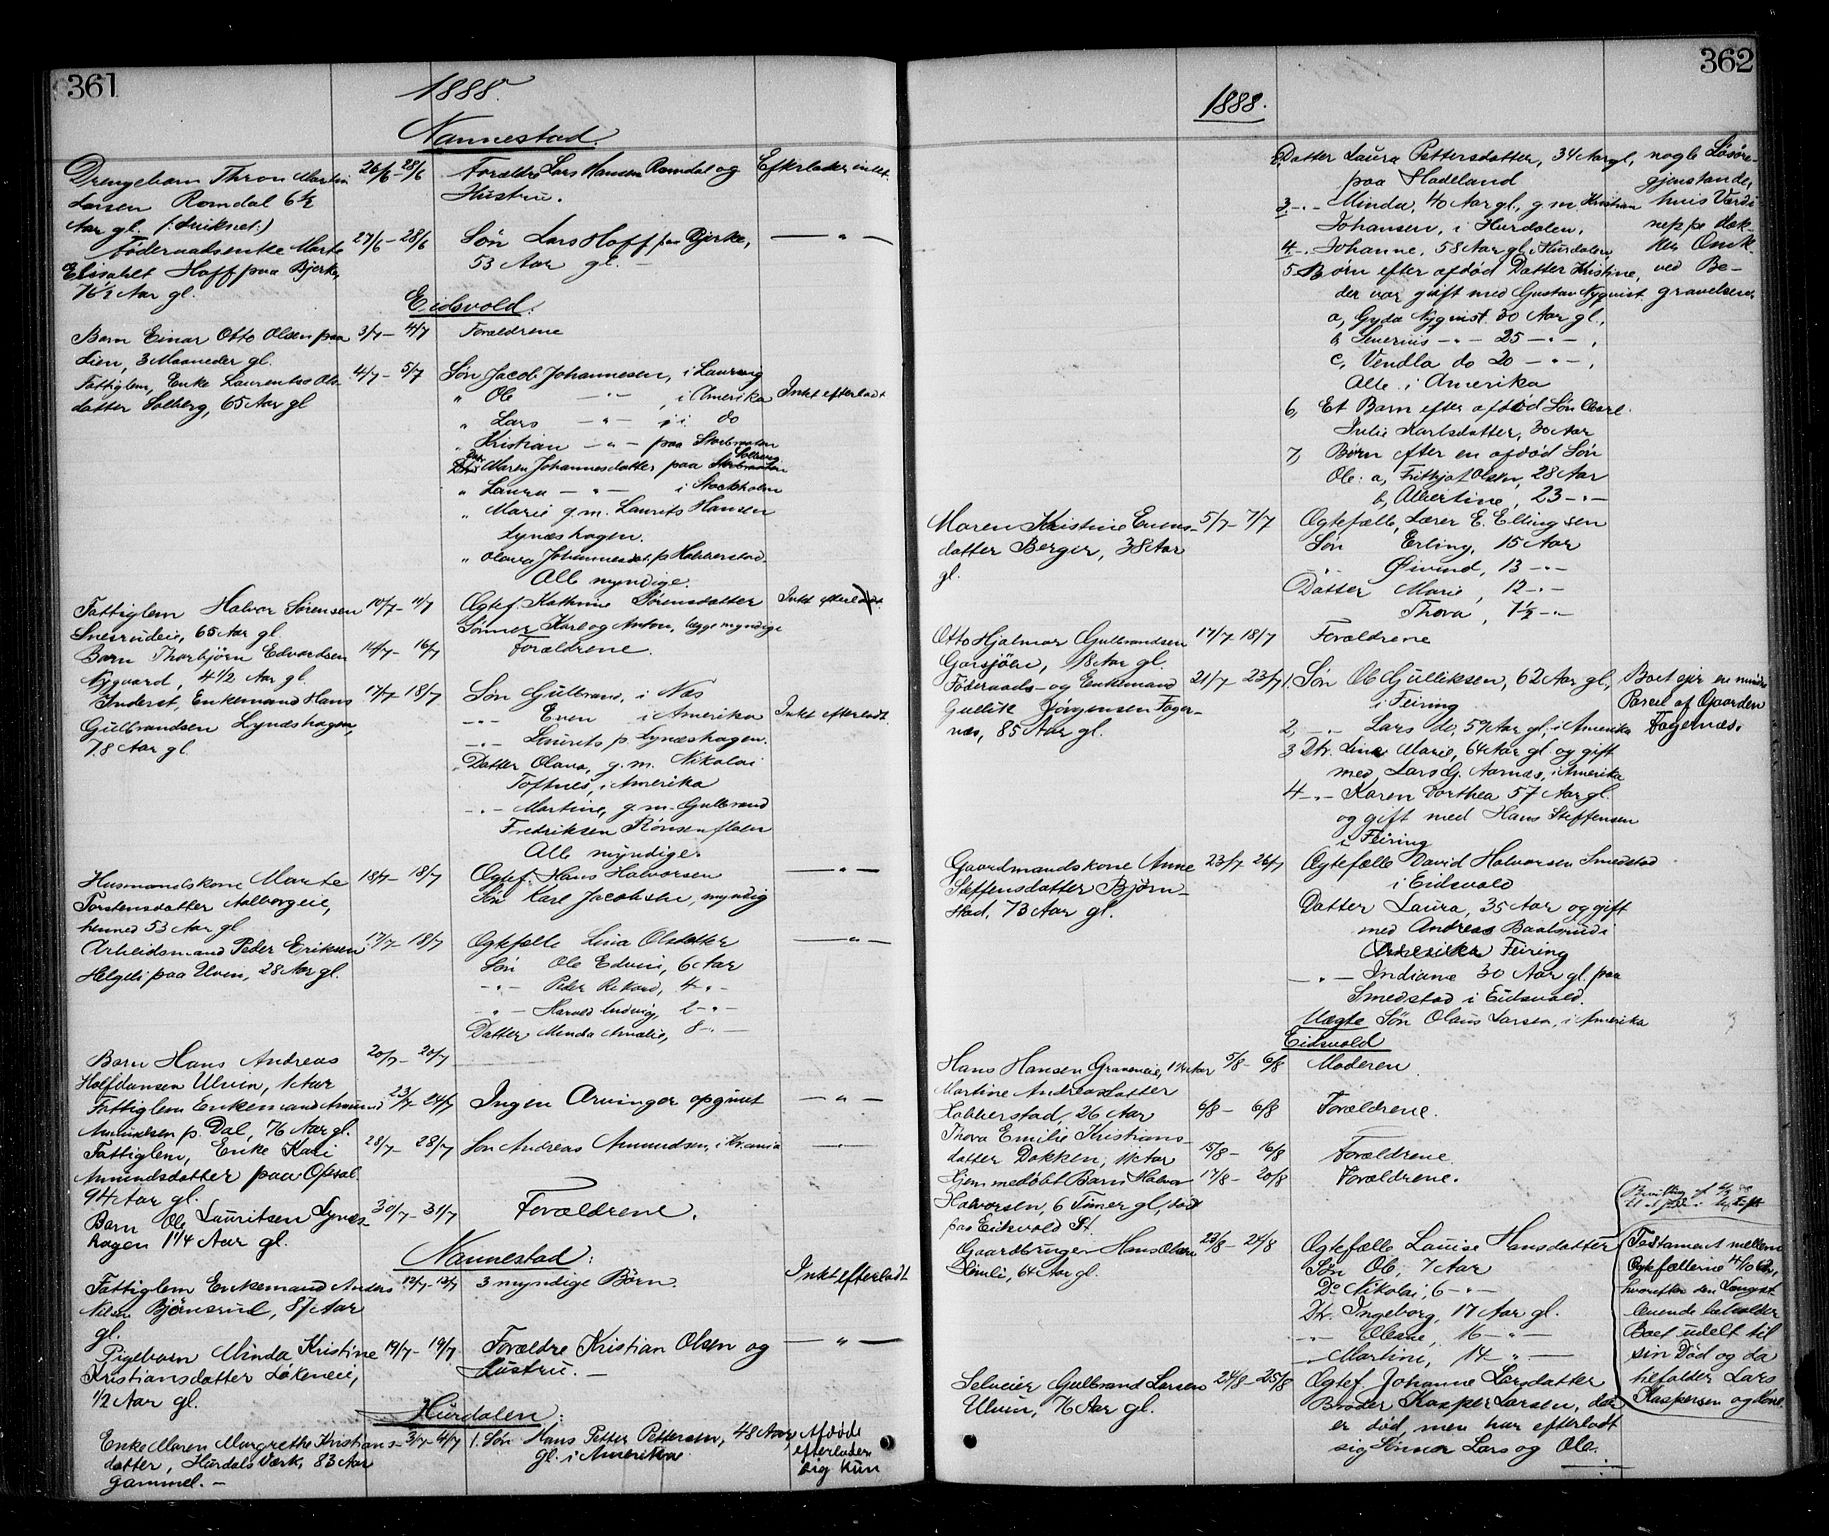 361
1888.
Nannestad.
Drengebarn Thron Martin 26/6 - 28/6 Forældre Lars Hansen Romdal og Efterlader intet.
Larsen Romdal 6½ Hustru.
Aar gl.
Føderaadsenke Marte 27/6 - 28/6 Søn Lars Hoff paa Bjerke, — " —
Elisabet Hoff paa Bjerke, 53 Aar gl. —
76½ Aar gl.
Eidsvold.
Barn Einar Otto Olsen paa 3/7 - 4/7 Forældrene
Lien, 3 Maaneder gl.
Fattiglem, Enke Laurentse Ols- 4/7 - 5/7 Søn Jacob Johannesen, i
datter Solberg, 65 Aar gl " Ole — " — , i Amerika Intet efterladt
" Lars — " — , i do
" Kristian — " — paa
Maren Johannesdatter paa
" Laura — " — i Stockholm
" Marie g.m. Laurits Hansen
Lynæshagen.
" Olava Johannesdat. p. Habberstad.
Alle myndige.
Fattiglem Halvor Sørensen 10/7 - 11/7 Ægtef. Kathrine Sørensdatter Intet efterladt
65 Aar gl. Sønner Karl og Anton, begge myndige
Barn Thorbjørn Edvardsen 14/7 - 16/7 Forældrene.
Nygaard, 4½ Aar gl.
Inderst, Enkemand Hans 17/7 - 18/7 Søn Gulbrand, i Næs
Gulbrandsen Lynæshagen, — " — Even i Amerika Intet efterladt.
78 Aar gl. — " — Laurits p. Lynæshagen.
Datter Olava, g.m. Nikolai
Toftnes, i Amerika
— " — Martine, g.m. Gulbrand
Fredriksen
Alle myndige.
Husmandskone Marte 18/7 - 18/7 Ægtef. Hans Halvorsen — " —
Torstensdatter Aalborgeie, Søn Karl Jacobsen, myndig
henved 53 Aar gl
Arbeidsmand Peder Eriksen 17/7 - 18/7 Ægtefælle Lina Olsdatter — " —
Helgeli paa Ulven, 28 Aar gl. Søn Ole Edvin, 6 Aar
— " — Peder Rikard, 4 - " -
— " — Harald Ludvig, 2 - " -
Datter Minda Amalie, 8 - " —
Barn Hans Andreas 20/7 - 20/7
Halfdansen Ulvin, 1 Aar
Fattiglem Enkemand Amund 23/7 - 24/7 Ingen Arvinger opgivet — " —
Amundsen p. Dal, 76 Aar gl.
Fattiglem, Enke Kari 28/7 - 28/7 Søn Andreas Amundsen, i Kr.ania — " —
Amundsdatter paa Opsal
94 Aar gl.
Barn Ole Lauritsen Lynæs- 30/7 - 31/7 Forældrene.
hagen 1¼ Aar gl.
Nannestad:
Fattiglem Enkemand Anders 12/7 - 13/7 3 myndige Børn. Intet efterladt
Nilsen Bjørnsrud, 87 Aar
gl.
Pigebarn Minda Kristine 19/7 - 19/7 Forældre Kristian Olsen og — " —
Kristiansdatter Løkeneie, Hustru. —
½ Aar gl.
Hurdalen:
Enke Maren Margrethe Kristians- 3/7 - 4/7 1. Søn Hans Petter Pettersen, 48 Aar Afdøde
datter, Hurdals Værk, 83 Aar gl. i Amerika efterlader
gammel. — sig kun
362
1888.
Datter Laura Pettersdatter, 34 Aar gl, nogle Løsøre-
paa Hadeland gjenstande,
3 - " - Minda, 40 Aar gl., g.m. Kristian hvis Værdi
Johansen, i Hurdalen, neppe dæk-
4 - " - Johanne, 58 Aar gl i Hurdalen, ker Omk.
5 Børn efter afdød Datter Kristine, ved Be-
der var gift med Gustav Nyqvist gravelsen.
a, Gyda Nyqvist 30 Aar gl.,
b, Severius - " - 25 - " - ,
c, Vendla do 20 - " - ,
Alle i Amerika
6, Et Barn efter afdød Søn Carl.
Julie Karlsdatter, 30 Aar
7, Børn efter en afdød Søn
Ole: a, Frithjof Olsen, 28 Aar
b, Albertine, 23 - " -
Maren Kristine Evens- 5/7 - 7/7 Ægtefælle, Lærer E. Ellingsen
datter Berger, 38 Aar Søn Erling, 15 Aar
gl. Øivind, 13 - " -
Datter Marie, 12 - " -
Thora, 1½ - " -
Otto Hjalmar Gulbrandsen 17/7 18/7 Forældrene
Garsjøen, 18 Aar gl.
Føderaads- og Enkemand 21/7 - 23/7 1. Søn Ole Gulliksen, 62 Aar gl, Boet ejer en mindre
Gullik Jørgensen Fager- i Feiring Parcel af Gaarden
næs, 85 Aar gl. 2, — " — Lars do, 59 Aar gl. i Amerika Fagernæs.
3 Dtr. Line Marie, 64 Aar gl. og gift
med Lars G. Aarnæs, i Amerika
4 - " - Karen Dorthea 57 Aar gl.
og gift med Hans Steffensen
i Feiring
Gaardmandskone Anne 23/7 26/7 Ægtefælle David Halvorsen Smedstad
Steffensdatter Bjørn- i Eidsvold
stad, 73 Aar gl. Datter Laura, 35 Aar og gift
med Andreas i
Feiring
— " — Indiane 30 Aar gl. paa
Smedstad i Eidsvold.
Uægte Søn Olaus Larsen, i Amerika
Eidsvold
Hans Hansen 5/8 - 6/8 Moderen.
Martine Andreasdatter
Habberstad, 26 Aar 6/8 - 6/8 Forældrene.
Thora Emilie Kristians-
datter Dokken, 15/8 - 16/8 Forældrene.
Hjemmedøbt Barn Halvor 17/8 - 20/8 Forældrene.
Halvorsen, 6 Timer gl, død
paa Eidsvold St.
Gaardbruger Hans Olsen 23/8 - 24/8 Ægtefælle Louise Hansdatter Testament mellem
64 Aar gl. Søn Ole, 7 Aar Ægtefællerne
Do Nikolai, 6 - " - hvorefter den længst
Dtr. Ingeborg, 17 Aar gl. levende beholder
— " — 16 - " — Boet udelt til
— " — Martine, 14 - " — sin Død og da
Selveier Gulbrand Larsen 24/8 - 25/8 Ægtef. Johanne Larsdatter tilfalder Lars
Ulven, 76 Aar gl. Broder Kasper Larsen, der Kaspersen og Kone.
er død, men har efterladt
sig Sønner Lars og Ole.